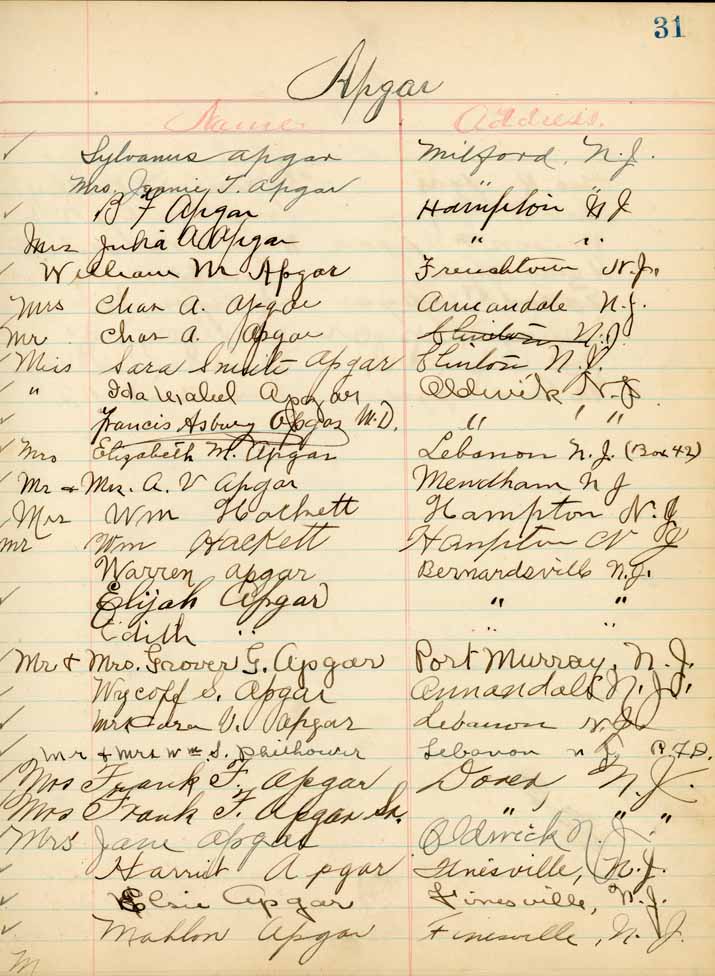 31
Apgar
Name. Address.
Sylvanus Apgar Milford, N.J.
Mrs. Jennie T. Apgar "
B F Apgar Hampton N J
Mrs Julia A Apgar " "
William M. Apgar Frenchtown N.J.
Mrs Chas A. Apgar Annandale N.J.
Mr Chas A. Apgar Clinton N.J.
Miss Sara Smith Apgar Clinton N.J.
" Ida Mabel Apgar Oldwick N.J.
Francis Asbury Apgar M.D. " " "
Mrs Elizabeth M. Apgar Lebanon N.J. (Box 42)
Mr & Mrs. A. V Apgar Mendham N J
Mrs Wm Hackett Hampton N.J
Mr Wm Hackett Hampton N J
Warren Apgar Bernardsville N.J.
Elijah Apgar " "
Edith " " "
Mr & Mrs. Grover G. Apgar Port Murray, N.J.
Wycoff S. Apgar Annandale N.J.
Mrs Cora V. Apgar Lebanon N.J.
Mr & Mrs Wm. S. Philhower Lebanon N J R.F.D.
Mrs Frank F. Apgar Dover, N.J.
Mrs Frank F. Apgar Sr. " " "
Mrs Jane Apgar Oldwick N.J.
Harriet Apgar Finesville, N.J.
Elsie Apgar Finesville, N.J.
Mahlon Apgar Finesville, N.J.
M